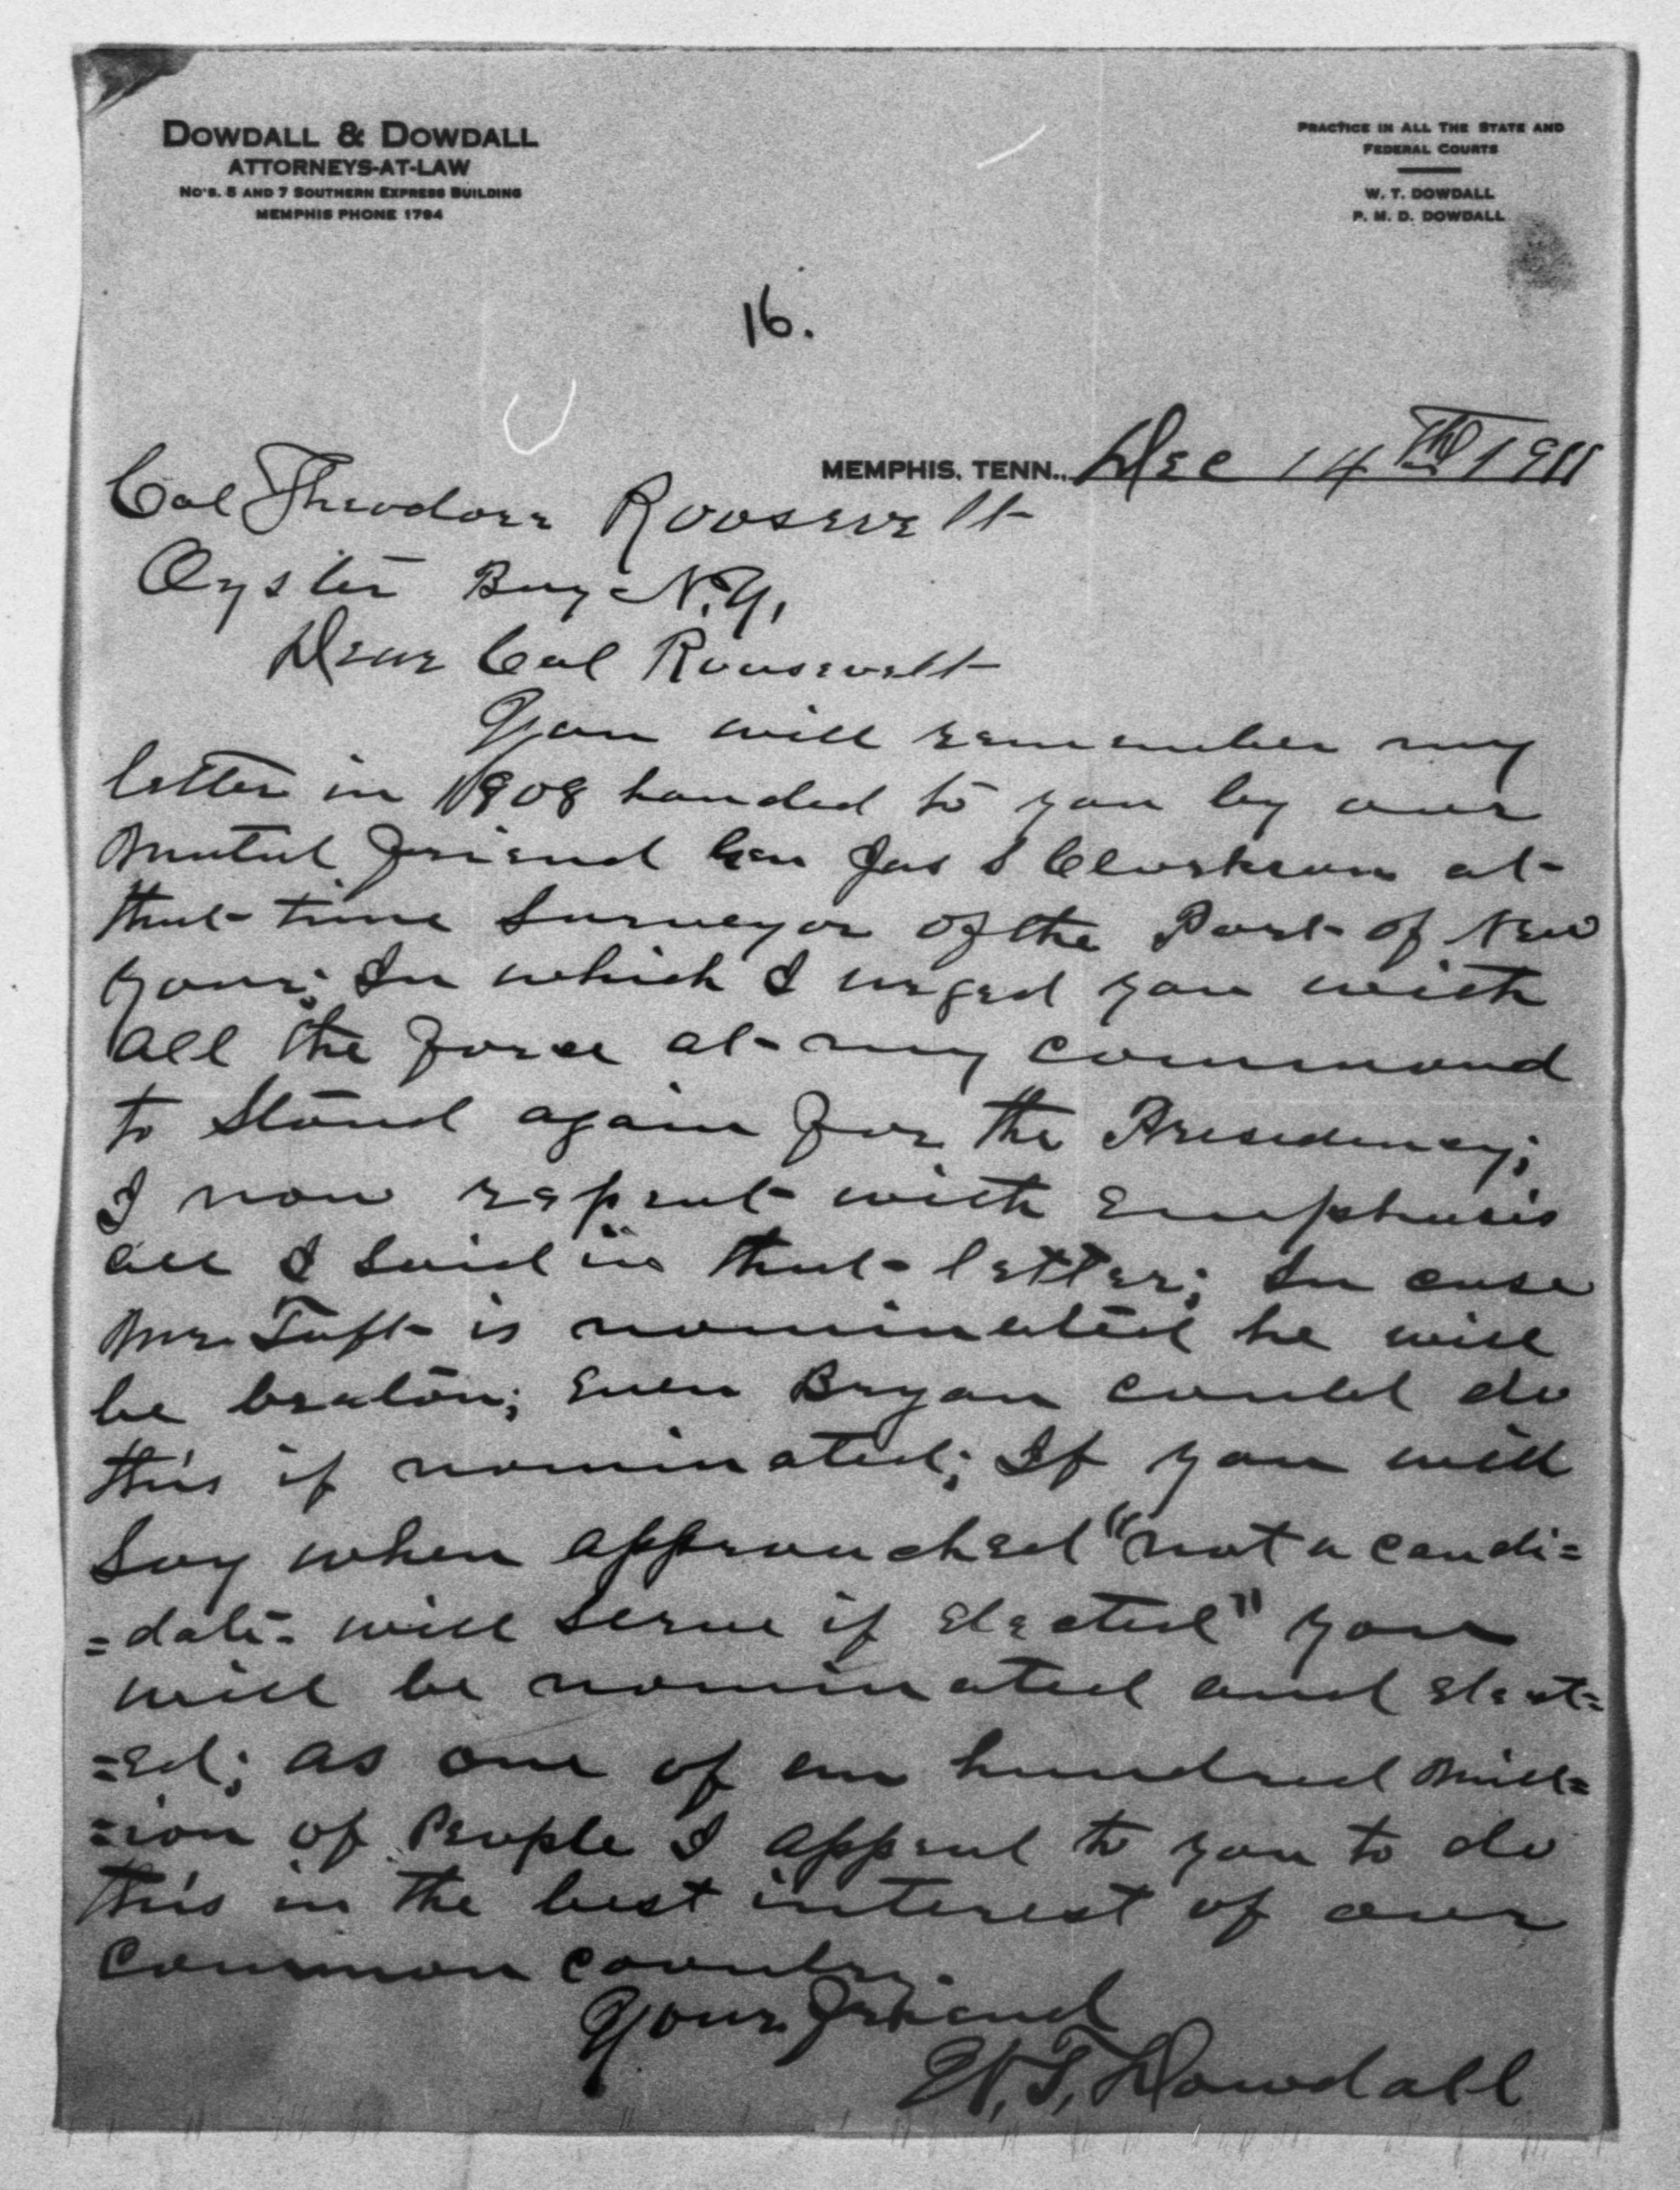 DOWDALL & DOWDALL
ATTORNEYS-AT-LAW
NO'S. 5 AND 7 SOUTHERN EXPRESS BUILDING
MEMPHIS PHONE 1794
PRACTICE IN ALL THE STATE AND
FEDERAL COURTS
W. T. DOWDALL
P. M. D. DOWDALL
16.
MEMPHIS, TENN., Dec 14th 1911
Col Theodore Roosevelt
Oyster Bay N.Y,
Dear Col Roosevelt
You will remember my
letter in 1908 handed to you by our
Mutul friend Gen Jas S Clarkson at
that time Surveyor of the Port of New
York; In which I urged you with
all the force at my command
to Stand again for the Presidency;
I now repeat with Emphasis
all I said in that letter; In case
Mr. Taft is nominated he will
be beaton; Even Bryan could do
this if nominated; If you will
Say when approached "not a candi=
=date- will serve if elected" you
will be nominated and elect=
=ed; as one of an hundred Mill=
=ion of People I appeal to you to do
this in the best interest of our
Common Country.
Your friend
W. T. Dowdall